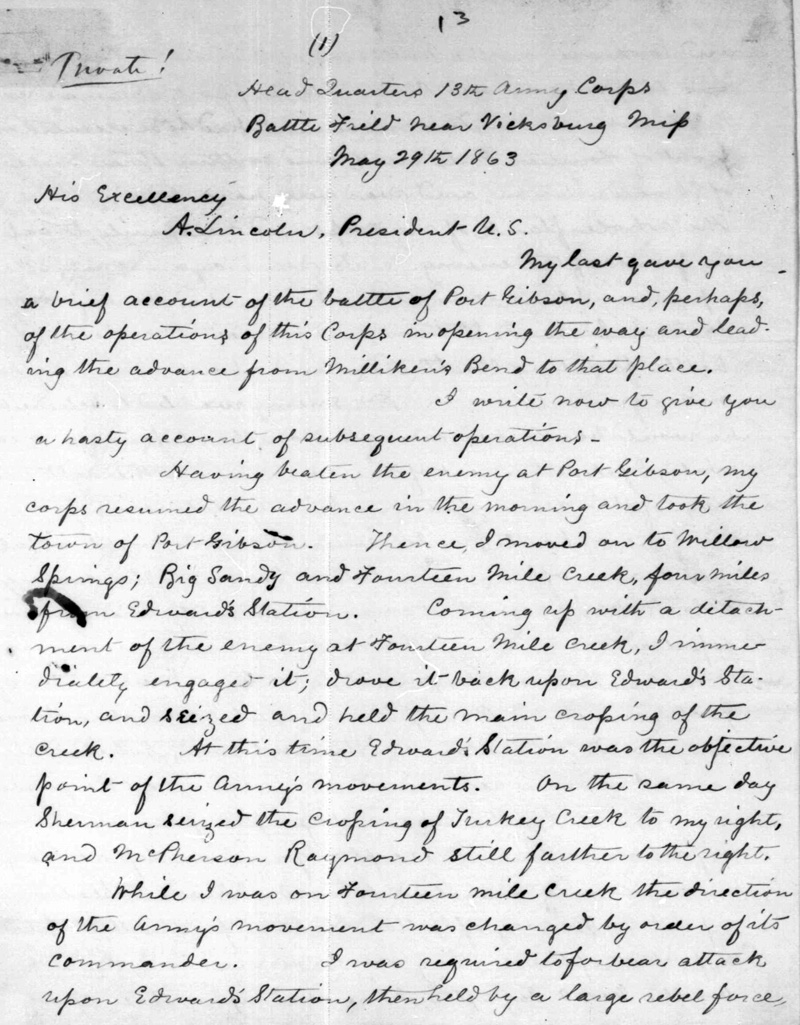 13
(1)
Private!
Head Quarters 13th Army Corps
Battle Field near Vicksburg Miss
May 29th 1863
His Excellency
A. Lincoln, President U.S.
My last gave you
a brief account of the battle of Port Gibson, and, perhaps,
of the operations of this Corps in opening the way and lead-
ing the advance from Milliken's Bend to that place.
I write now to give you
a hasty account of subsequent operations-
Having beaten the enemy at Port Gibson, my
corps resumed the advance in the morning and took the
town of Port Gibson. Thence, I moved on to Willow
Springs; Big Sandy and Fourteen Mile Creek, four miles
from Edward's Station. Coming up with a detach-
ment of the enemy at Fourteen Mile Creek, I imme-
diately engaged it; drove it back upon Edward's Sta-
tion, and seized and held the main crossing of the
creek. At this time Edward's Station was the objective
point of the Army's movements. On the same day
Sherman seized the crossing of Turkey Creek to my right,
and McPherson Raymond still farther to the right.
While I was on Fourteen Mile Creek the direction
of the Army's movement was changed by order of its
commander. I was required to forbear attack
upon Edward's Station, then held by a large rebel force,